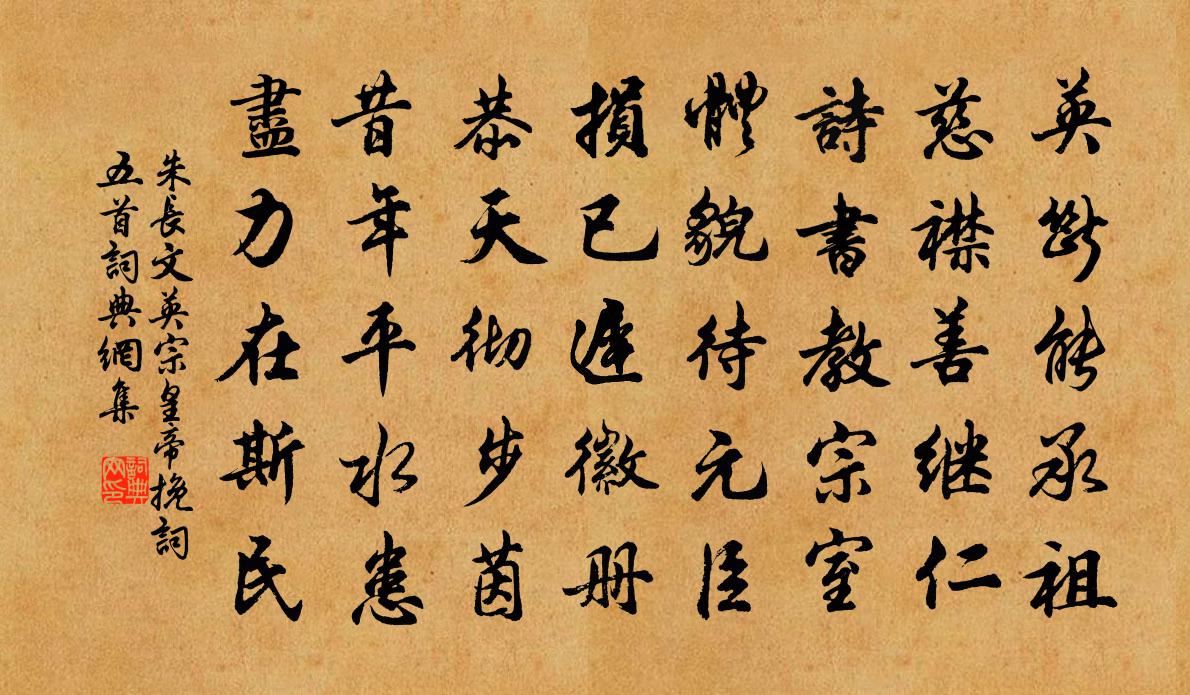 英断能承祖
慈襟善继仁
詩書教宗室
體貌待元臣
損已遲徽册
恭天彻步茵
昔年平水患
盡力在斯民
朱長文英宗皇帝挽詞
五首詞典網集
詞典
网印